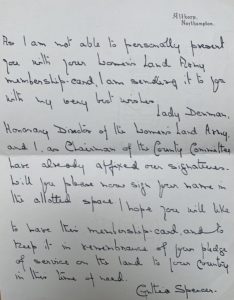 Althorp,
Northampton.
As I am not able to personally present
you with your Women's Land Army
membership-card, I am sending it to you
with my very best wishes.
Lady Denman,
Honorary Director of the Women's Land Army,
and I, as Chairman of the County Committee
have already affixed our signatures.
Will you please now sign your name in
the allotted space. I hope you will like
to have this membership-card, and to
keep it in remembrance of your pledge
of service on the land to your Country
in this time of need.
Cynthia Spencer.